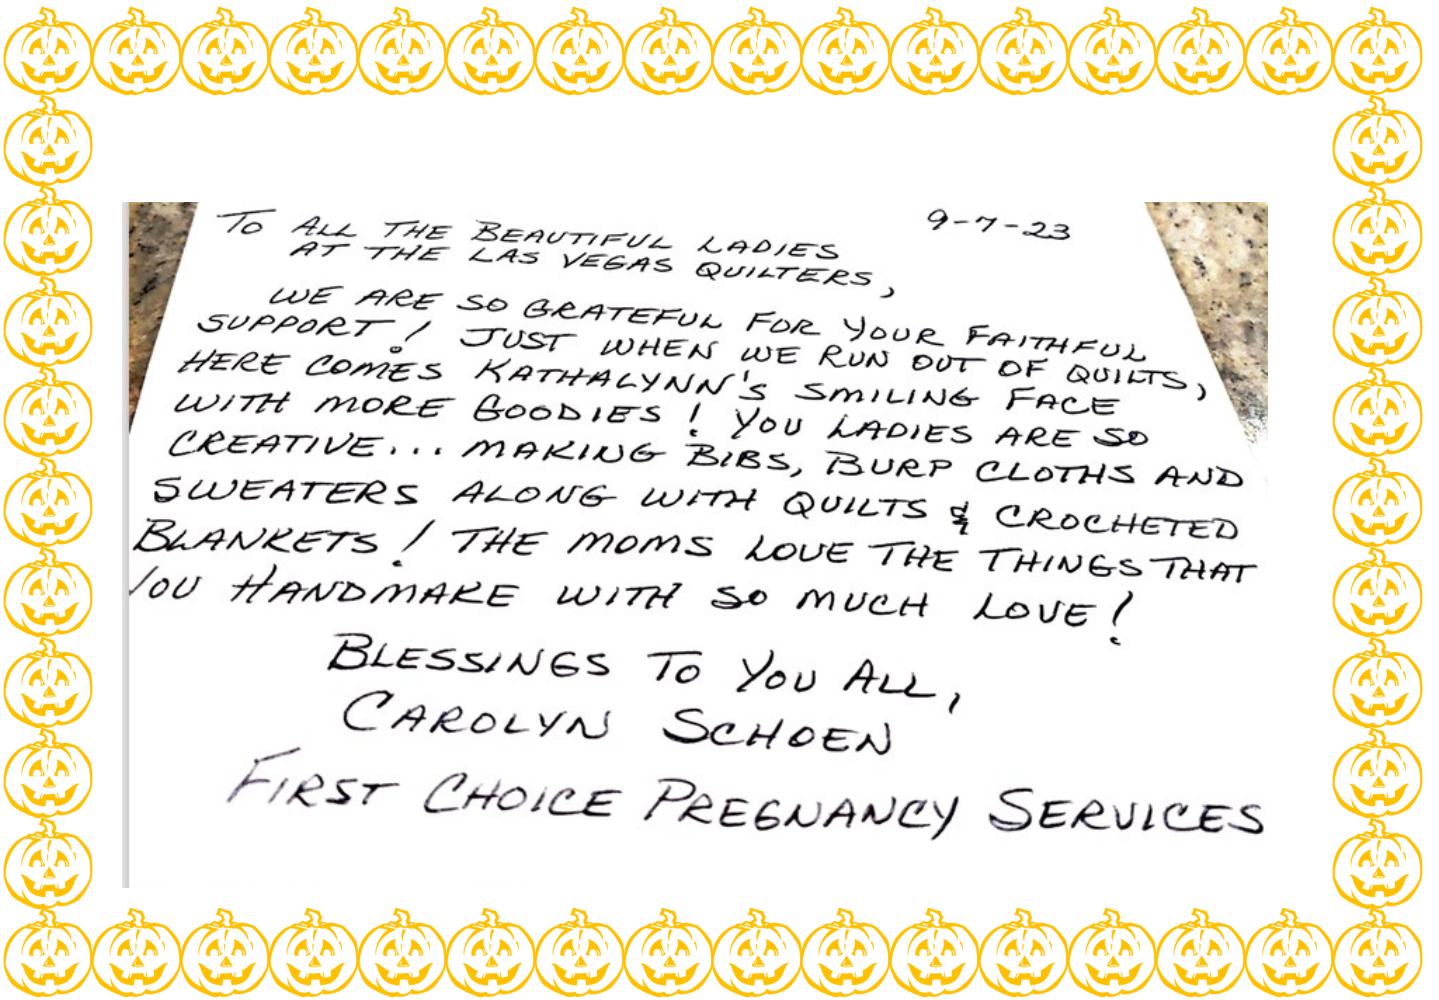 9-7-23
To ALL THE BEAUTIFUL LADIES
AT THE LAS VEGAS QUILTERS,
WE ARE SO GRATEFUL FOR YOUR FAITHFUL
SUPPORT! JUST WHEN WE RUN OUT OF QUILTS,
HERE COMES KATHALYNN'S SMILING FACE
WITH MORE GOODIES! YOU LADIES ARE SO
CREATIVE... MAKING BIBS, BURP CLOTHS AND
SWEATERS ALONG WITH QUILTS & CROCHETED
BLANKETS! THE MOMS LOVE THE THINGS THAT
YOU HANDMAKE WITH SO MUCH LOVE!
BLESSINGS TO YOU ALL,
CAROLYN SCHOEN
FIRST CHOICE PREGNANCY SERVICES